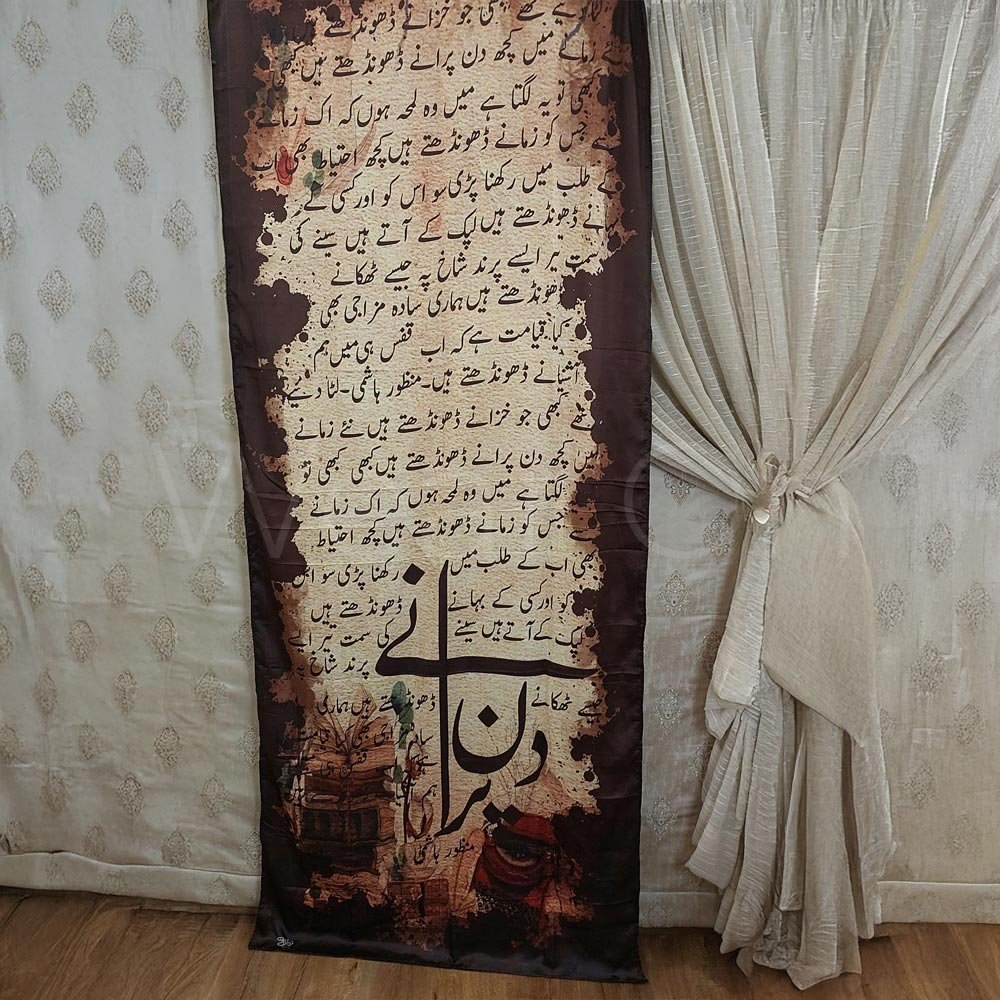 تھے کبھی جو خزانے ڈھونڈھتے ہیں
نئے زمانے میں کچھ دن پرانے ڈھونڈھتے ہیں کبھی
کبھی تو یہ لگتا ہے میں وہ لمحہ ہوں کہ اک زمانے
سے جس کو زمانے ڈھونڈھتے ہیں کچھ احتیاط بھی اب
کے طلب میں رکھنا پڑی سو اس کو اور کسی کے
بہانے ڈھونڈھتے ہیں لپک کے آتے ہیں سینے کی
سمت تیر ایسے پرند شاخ پہ جیسے ٹھکانے
ڈھونڈھتے ہیں ہماری سادہ مزاجی بھی
کیا قیامت ہے کہ اب قفس ہی میں ہم
آشیانے ڈھونڈھتے ہیں۔منظور ہاشمی۔لٹا دیئے
تھے کبھی جو خزانے ڈھونڈھتے ہیں نئے زمانے
میں کچھ دن پرانے ڈھونڈھتے ہیں کبھی کبھی تو
لگتا ہے میں وہ لمحہ ہوں کہ اک زمانے
سے جس کو زمانے ڈھونڈھتے ہیں کچھ احتیاط
بھی اب کے طلب میں رکھنا پڑی سو اس
کو اور کسی کے بہانے ڈھونڈھتے ہیں
لپک کے آتے ہیں سینے کی سمت تیر ایسے
پرند شاخ پہ
جیسے ٹھکانے ڈھونڈھتے ہیں ہماری
دن پرانے
منظور ہاشمی